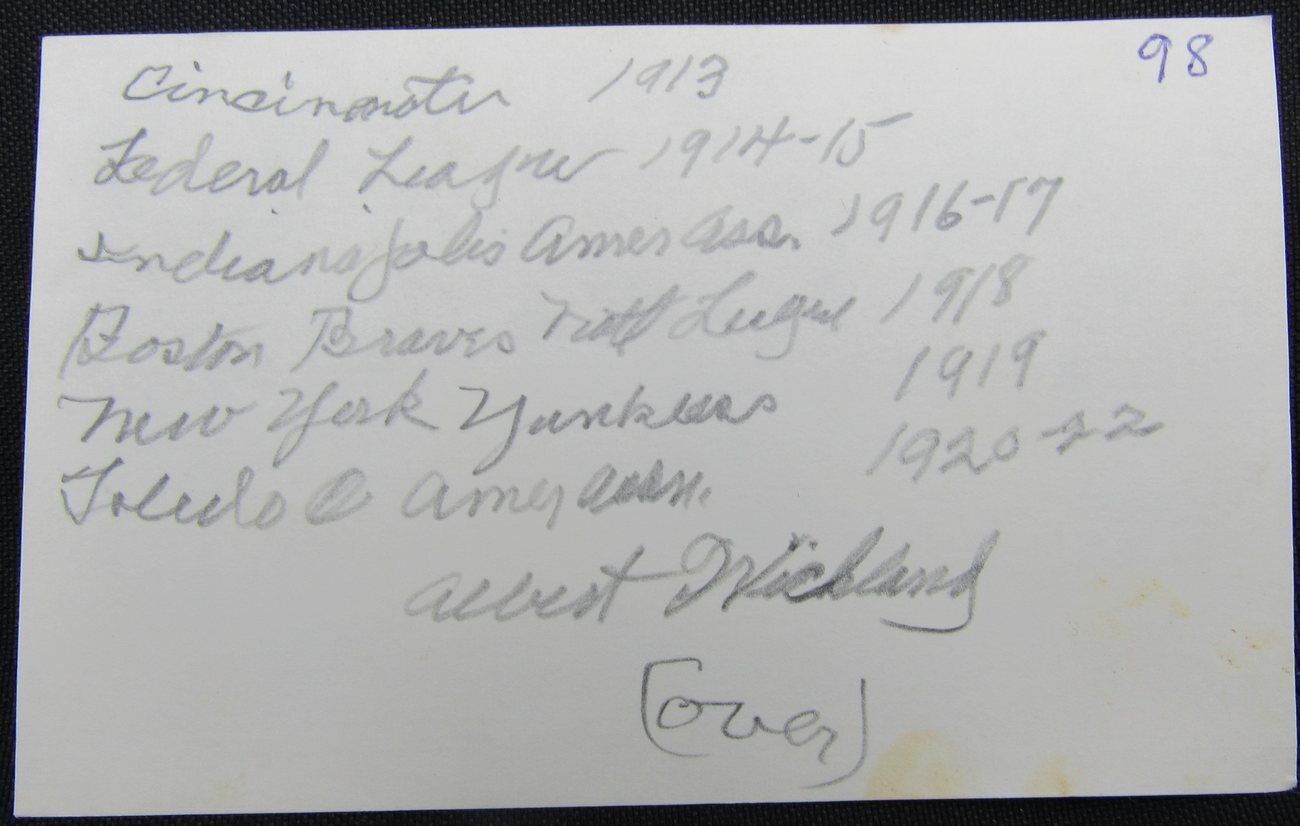 98
Cincinnati 1913
Federal League 1914-15
Indianapolis Amer Assn. 1916-17
Boston Braves Natl League 1918
New York Yankees 1919
Toledo O Amer Assn. 1920-22
Albert Wickland
(over)